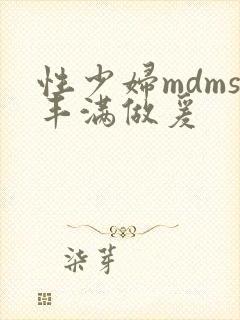 性少妇mdms
丰满做爰
柒芽